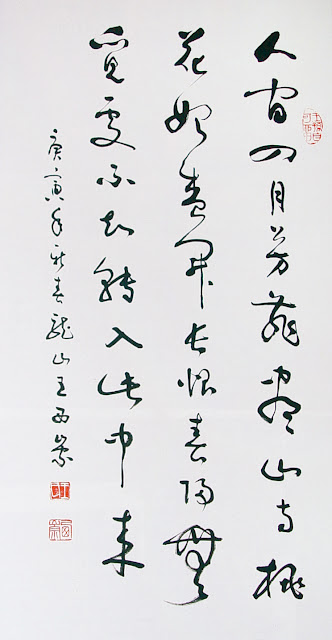 人間四月芳菲盡山寺桃
花始盛開長恨春歸無
覔處不知轉入此中來
庚寅年新春龍山王西